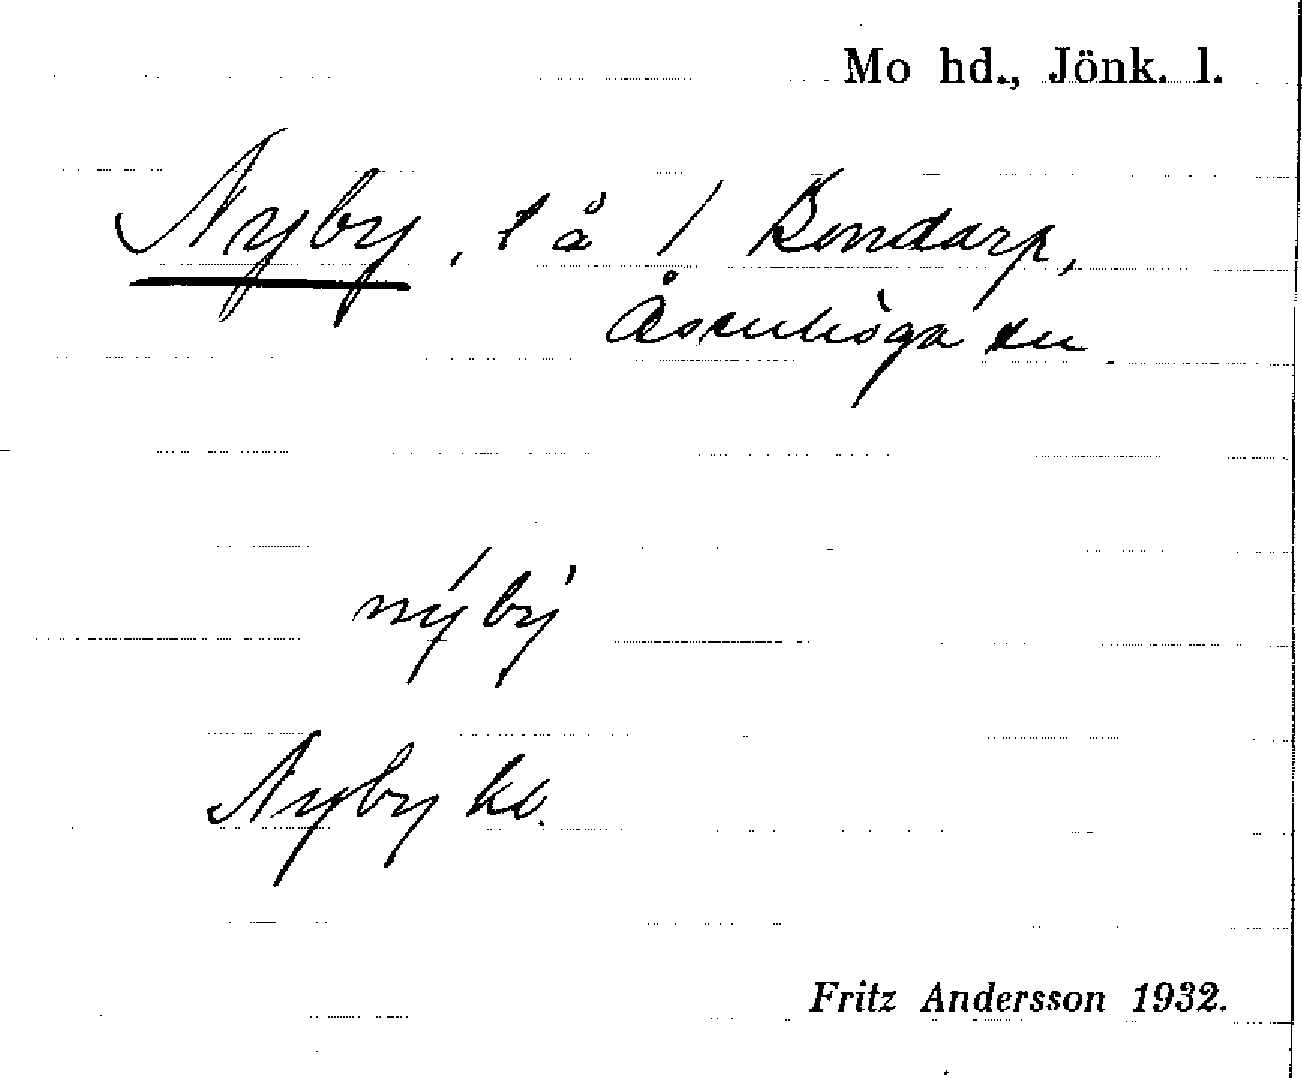 Mo hd., Jönk. l.
Nyby, l å 1 Bondarp,
Åsenhöga sn
nýbý
Nyby kl.
Fritz Andersson 1932.